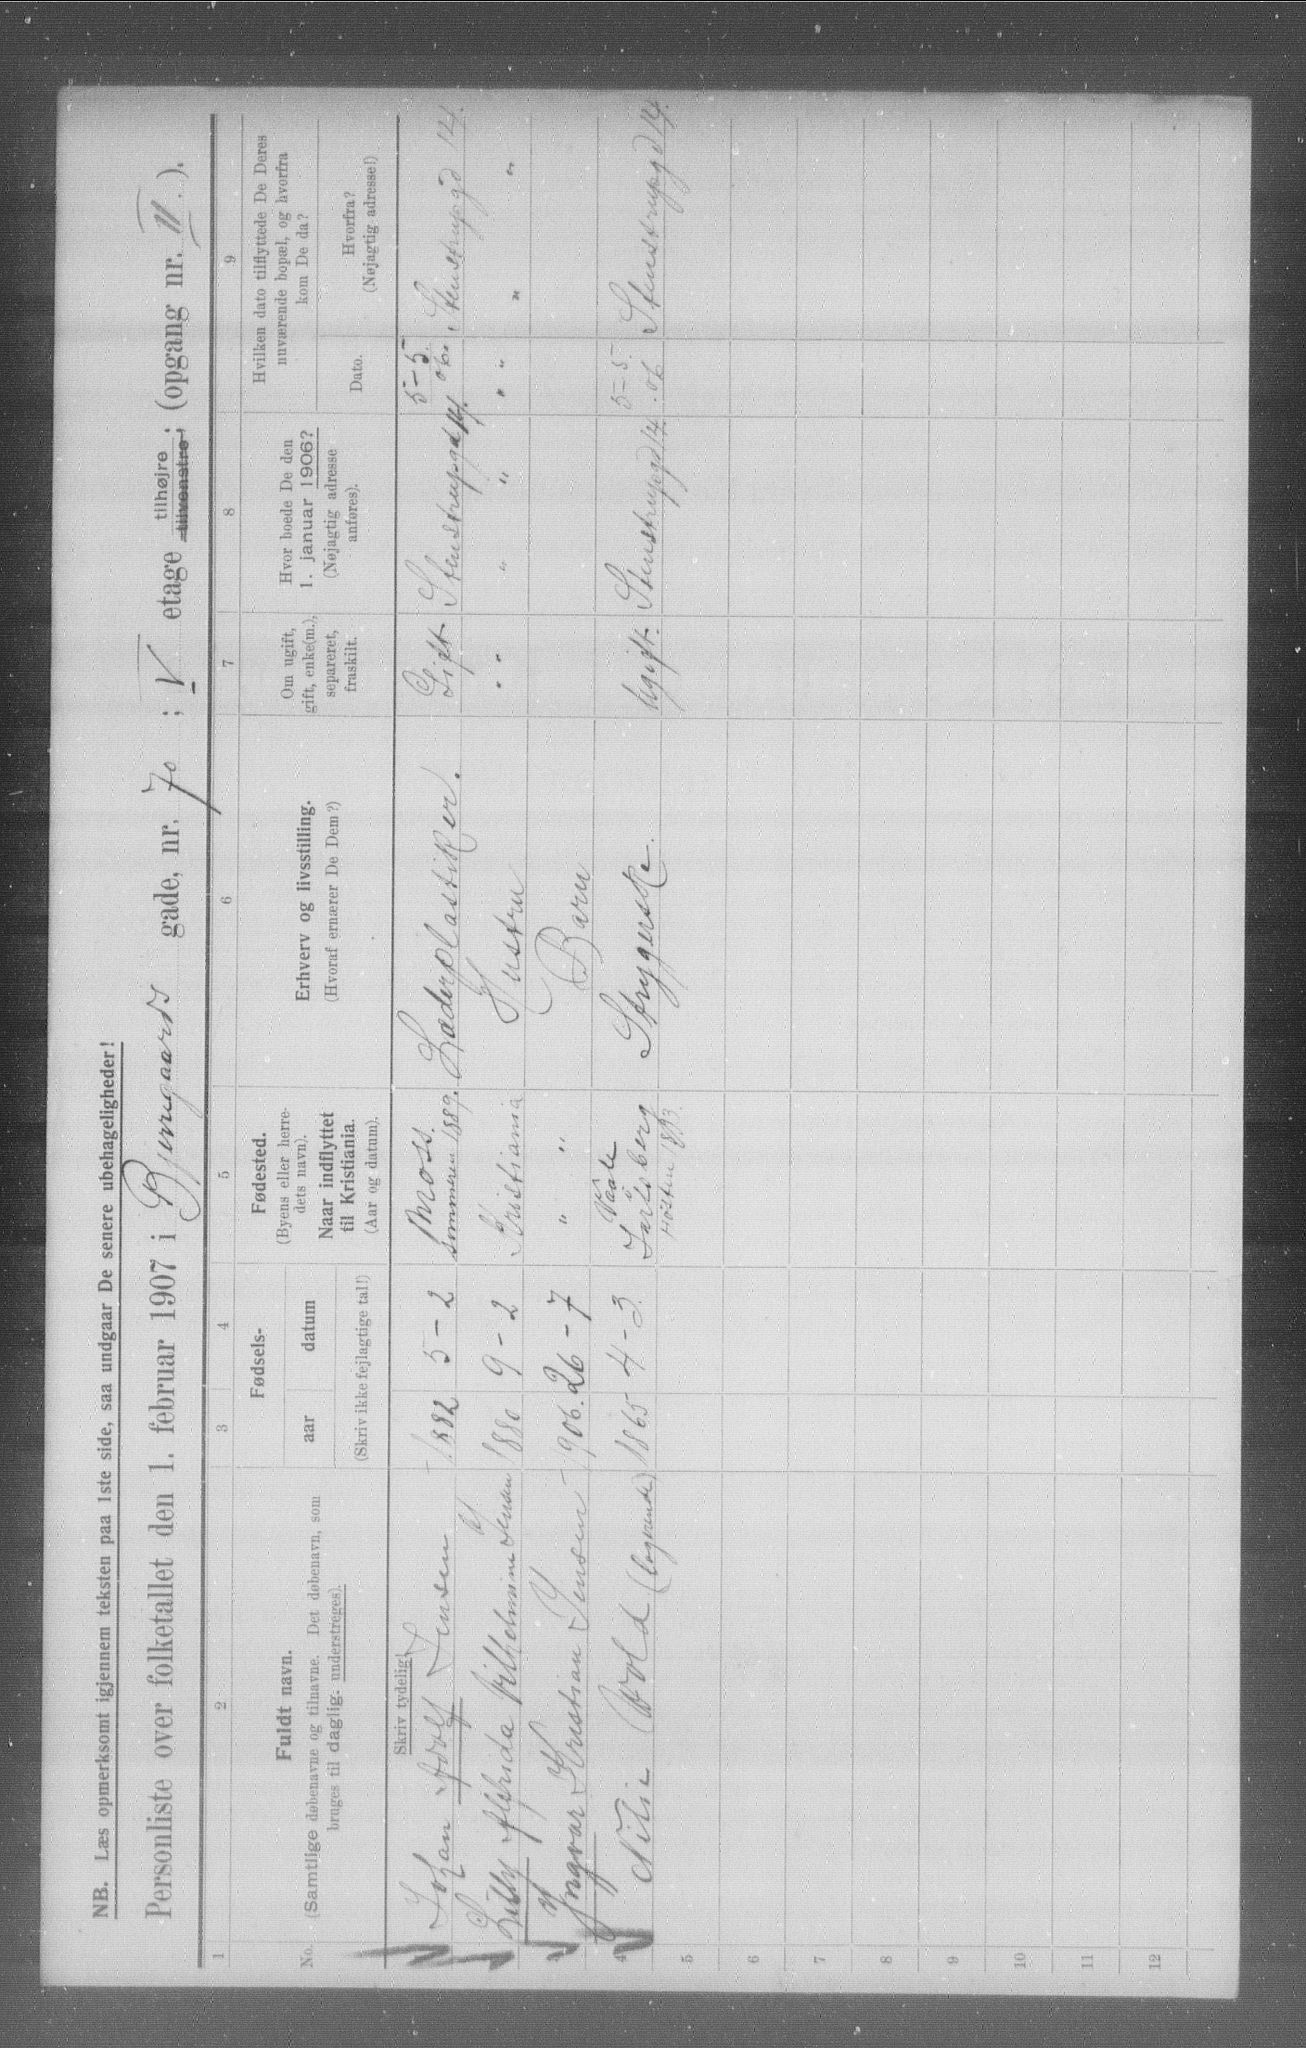 NB. Læs opmerksomt igjennem teksten paa 1ste side, saa undgaar De senere ubehageligheder!
Personliste over folketallet den 1. februar 1907 i Bjerregaards gade, nr. 70 ; V etage tilhøjre tilvenstre; (opgang nr. II.).
1 2 3 4 5 6 7 8 9
No.
Fuldt navn.
(Samtlige døbenavne og tilnavne. Det døbenavn, som
bruges til daglig, understreges).
Fødsels-
aar datum
(Skriv ikke fejlagtige tal!)
Fødested.
(Byens eller herre-
dets navn).
Naar indflyttet
til Kristiania.
(Aar og datum).
Erhverv og livsstilling.
(Hvoraf ernærer De Dem?)
Om ugift,
gift, enke(m.),
separeret,
fraskilt.
Hvor boede De den
1. januar 1906?
(Nøjagtig adresse
anføres).
Hvilken dato tilflyttede De Deres
nuværende bopæl, og hvorfra
kom De da?
Dato.
Hvorfra?
(Nøjagtig adresse!)
Skriv tydelig!
Johan Adolf Jensen 1882 5-2 Moss. sommeren 1889. Læderplastiker. Gift Stenstrupgd 14. 5-5 06. Stenstrupgd 14.
Lilly Alfrida Vilhelmine Jensen 1880 9-2 Kristiania Hustru " " " " " " " "
Yngvar Kristian Jensen 1906. 26-7 " " Barn
4 Nilia Wold (logerende) 1865 4-3. Vaale Jarlsberg Høsten 1893. Strygerske. Ugift. Stenstrupgd 14. 5-5 06. Stenstrupgd 14.
5
6
7
8
9
10
11
12